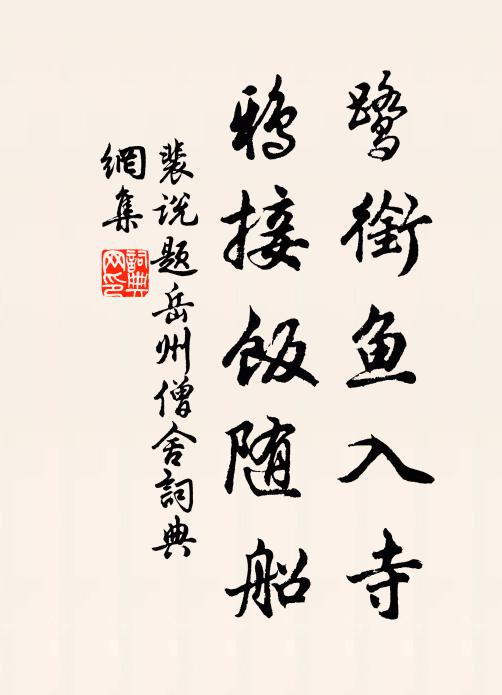 鹭銜鱼入寺
鸦接飯随船
裴说题岳州僧舍詞典
網集
詞典网印